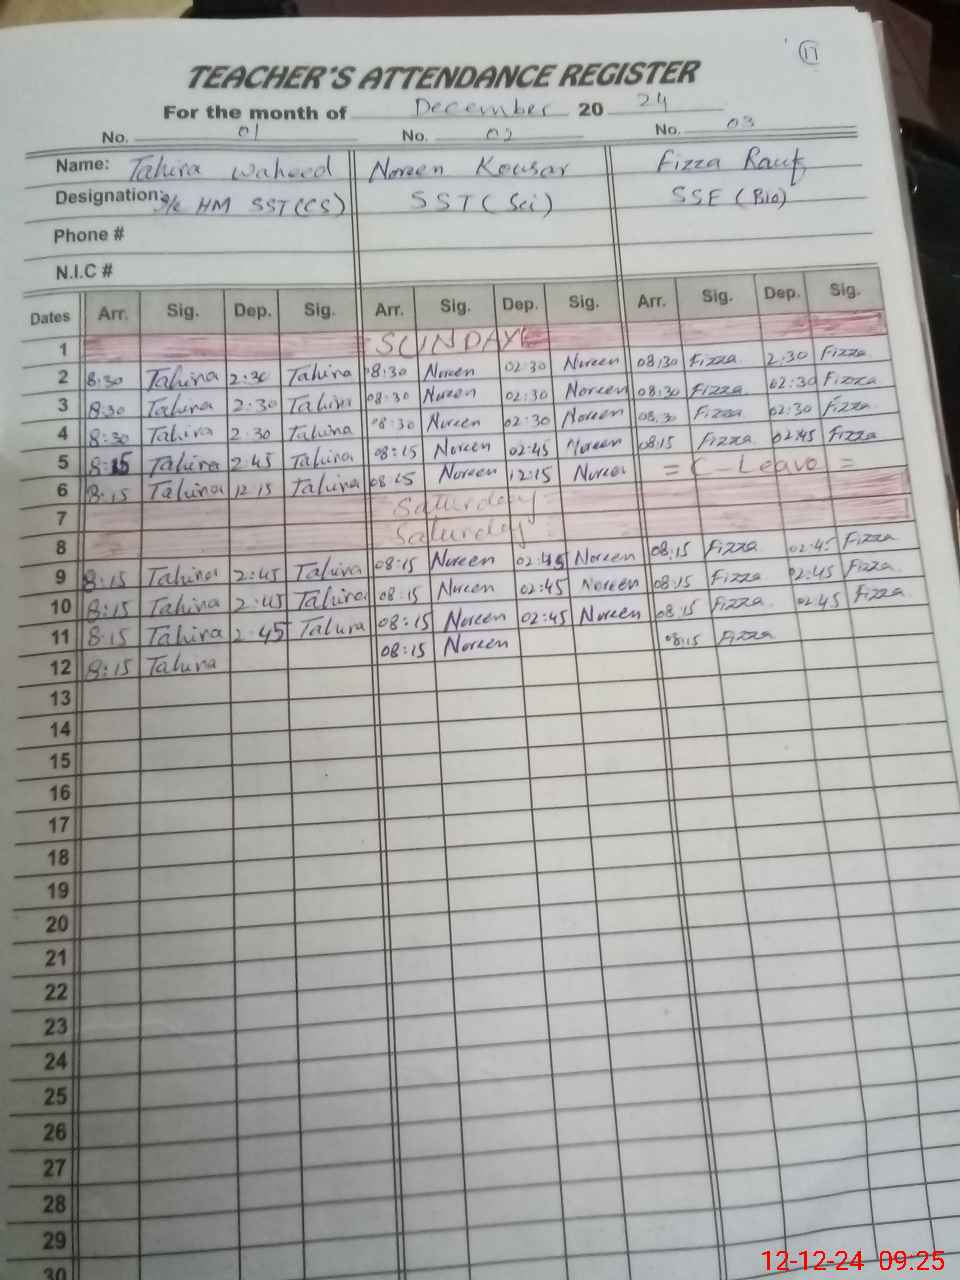 17
TEACHER'S ATTENDANCE REGISTER
For the month of December 20 24
No. 01 No. 02 No. 03
Name: Tahira Waheed Noreen Kousar Fizza Rauf
Designation: I/c HM SST(CS) SST (Sci) SSE (Bio)
Phone #
N.I.C #
Dates Arr. Sig. Dep. Sig. Arr. Sig. Dep. Sig. Arr. Sig. Dep. Sig.
1 SUNDAY
2 8:30 Tahira 2:30 Tahira 08:30 Noreen 02:30 Noreen 08:30 Fizza 2:30 Fizza
3 8:30 Tahira 2:30 Tahira 08:30 Noreen 02:30 Noreen 08:30 Fizza 02:30 Fizza
4 8:30 Tahira 2:30 Tahira 08:30 Noreen 02:30 Noreen 08:30 Fizza 02:30 Fizza
5 8:15 Tahira 2:45 Tahira 08:15 Noreen 02:45 Noreen 08:15 Fizza 02:45 Fizza
6 8:15 Tahira 12:15 Tahira 08:15 Noreen 12:15 Noreen = C-Leave =
7 Saturday
8 Saturday
9 8:15 Tahira 2:45 Tahira 08:15 Noreen 02:45 Noreen 08:15 Fizza 02:45 Fizza
10 8:15 Tahira 2:45 Tahira 08:15 Noreen 02:45 Noreen 08:15 Fizza 02:45 Fizza
11 8:15 Tahira 2:45 Tahira 08:15 Noreen 02:45 Noreen 08:15 Fizza 02:45 Fizza
12 8:15 Tahira 08:15 Noreen 08:15 Fizza
13
14
15
16
17
18
19
20
21
22
23
24
25
26
27
28
29
30
12-12-24 09:25